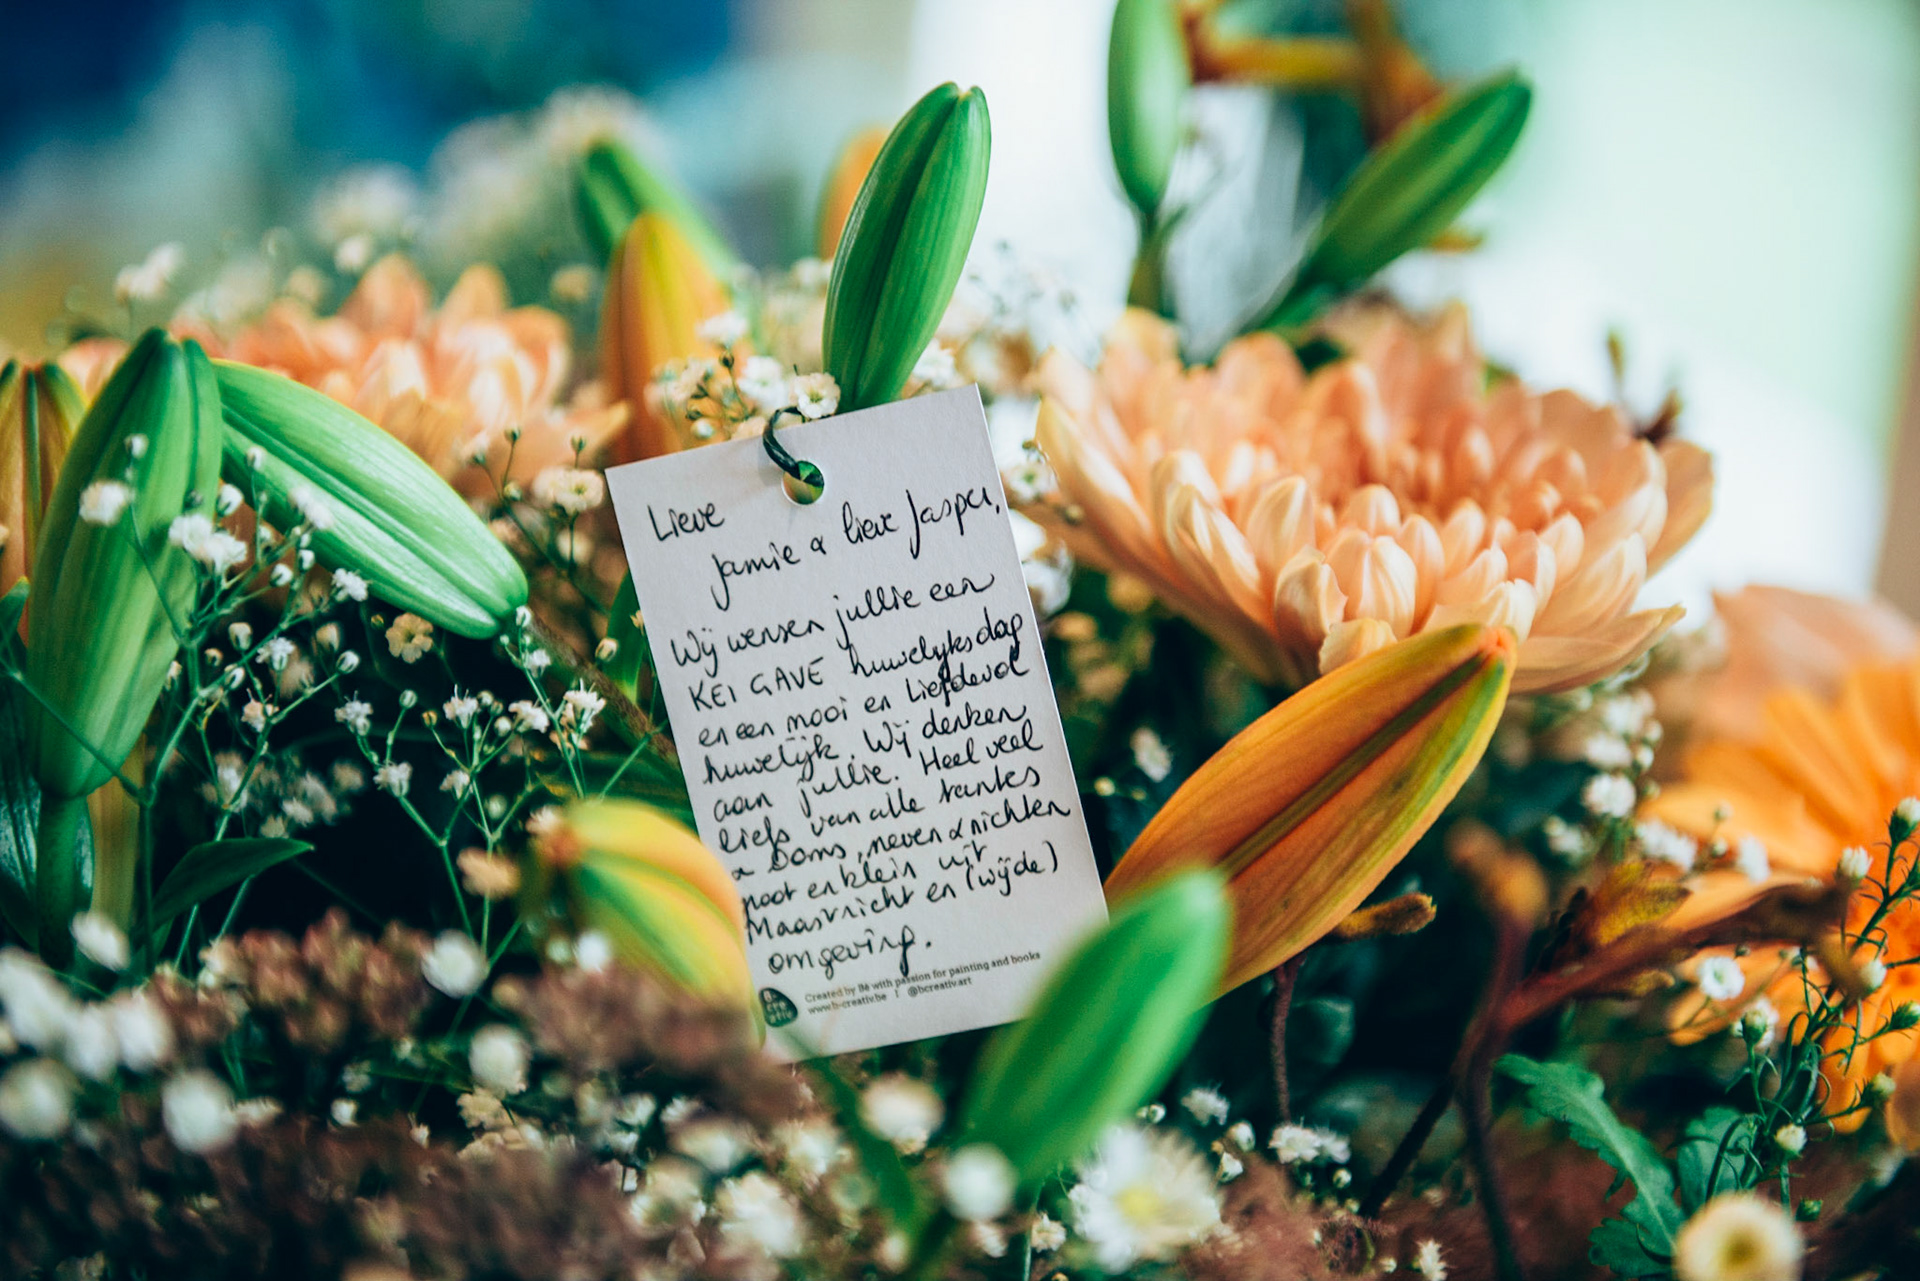 Lieve
Jamie & lieve Jasper,
Wij wensen jullie een
KEI GAVE huwelijksdag
en een mooi en liefdevol
huwelijk. Wij denken
aan jullie. Heel veel
liefs van alle tantes
& ooms, neven & nichten
groot en klein uit
Maastricht en (wijde)
omgeving.
B-
cre
ativ
Created by Bé with passion for painting and books
www.b-creativ.be | @bcreativ.art